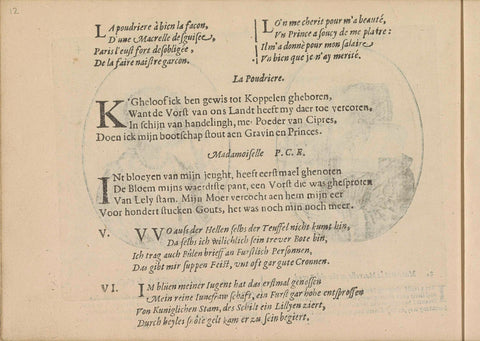 12
LA poudriere à bien la façon,
D'une Macrelle desguisee,
Paris l'eust fort desobligée,
De la faire naistre garcon.
LOn me cherit pour m'a beauté,
Vn Prince a soucy de me platre:
Il m'a donnè pour mon salaire
Vo bien que je n'ay merité.
La Poudriere.
K'Gheloof ick ben gewis tot Koppelen gheboren,
Want de Vorst van ons Landt heeft my daer toe vercoren.
In schijn van handelingh, met Poeder van Cipres,
Doen ick mijn bootschap stout aen Gravin en Princes.
Madamoiselle P. C. E.
INt bloeyen van mijn jeught, heeft eerstmael ghenoten
De Bloem mijns waerdtste pant, een Vorst die was ghesproten
Van Lely stam. Mijn Moer vercocht aen hem mijn eer
Voor hondert stucken Gouts, het was noch mijn noch meer.
V. VVO auss der Hellen selbs der Teuffel nicht kumt hin,
Da selbs ich willichlich sein trewer Bote bin,
Ich trag auch Bülen brieff an Furstlich Personen,
Das gibt mir suppen Feist, vnt offt gar gute Cronnen.
VI. IM blüen meiner Iugent hat das erstmal genossen
Mein reine Iuncfraw schaft, ein Furst gar hohe entsprossen
Von Kuniglichen Stam, des Schilt ein Lillyen ziert,
Durch beyles gelt kam er zu sein begiert.